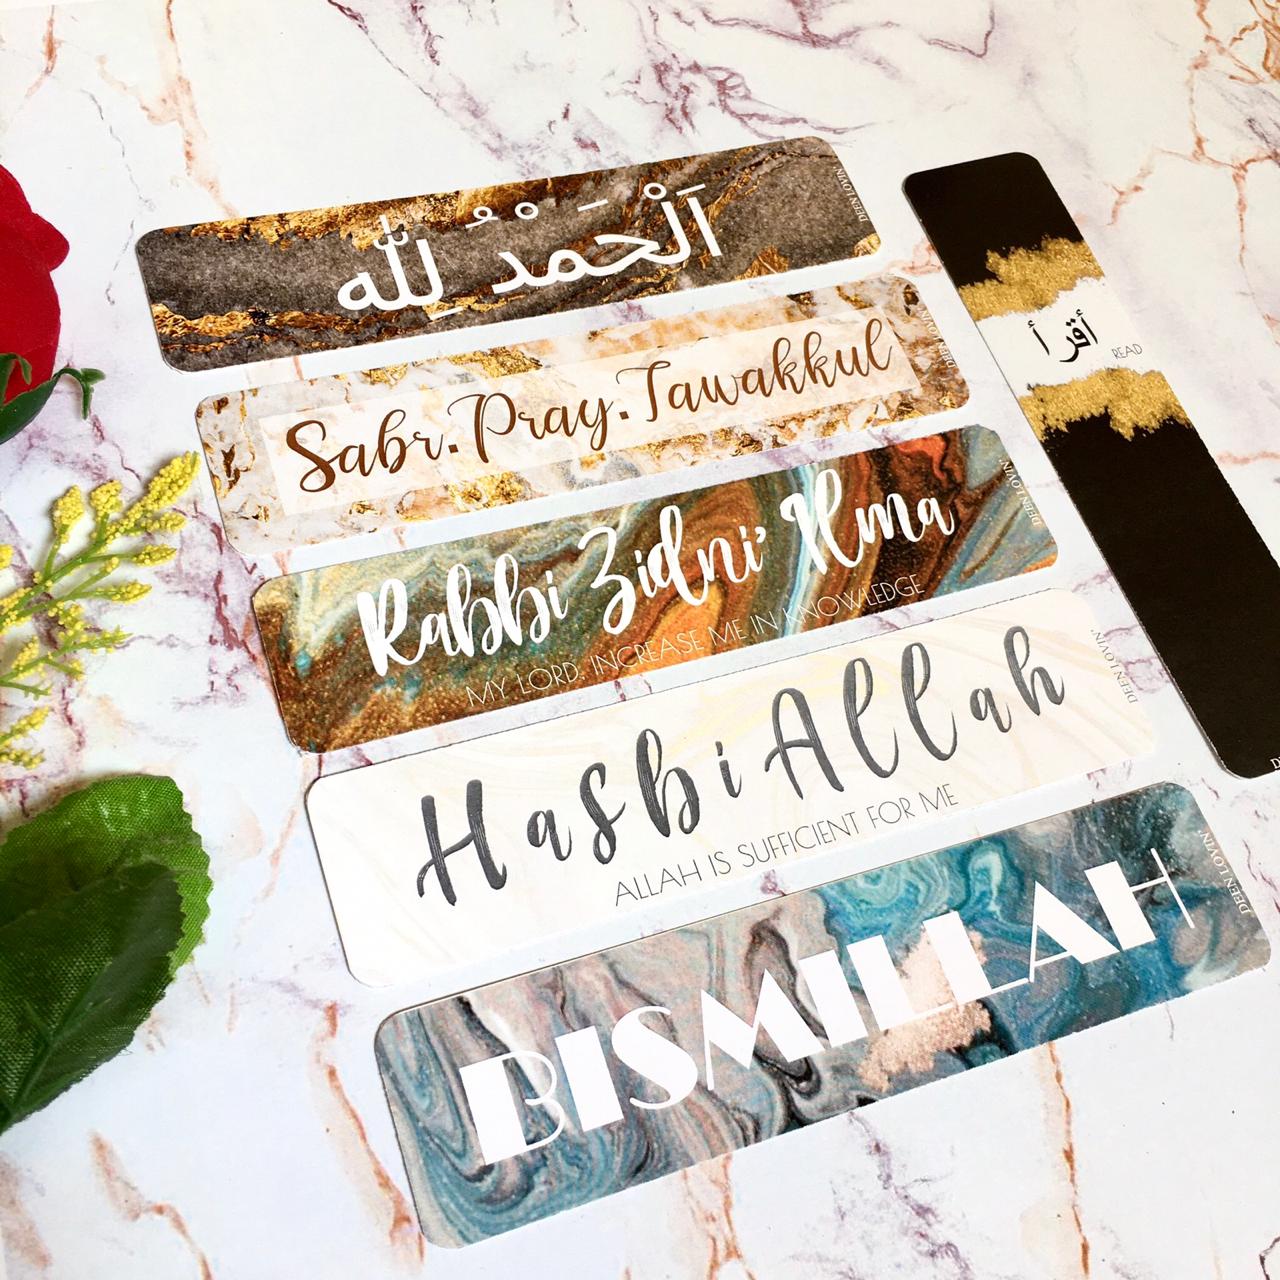 اَلْحَمْدُ لِلّٰه
DEEN LOVIN'
Sabr.Pray.Tawakkul
DEEN LOVIN'
Rabbi Zidni' Ilma
MY LORD, INCREASE ME IN KNOWLEDGE
DEEN LOVIN'
HasbiAllah
ALLAH IS SUFFICIENT FOR ME
DEEN LOVIN'
BISMILLAH
DEEN LOVIN'
أقر أ
READ